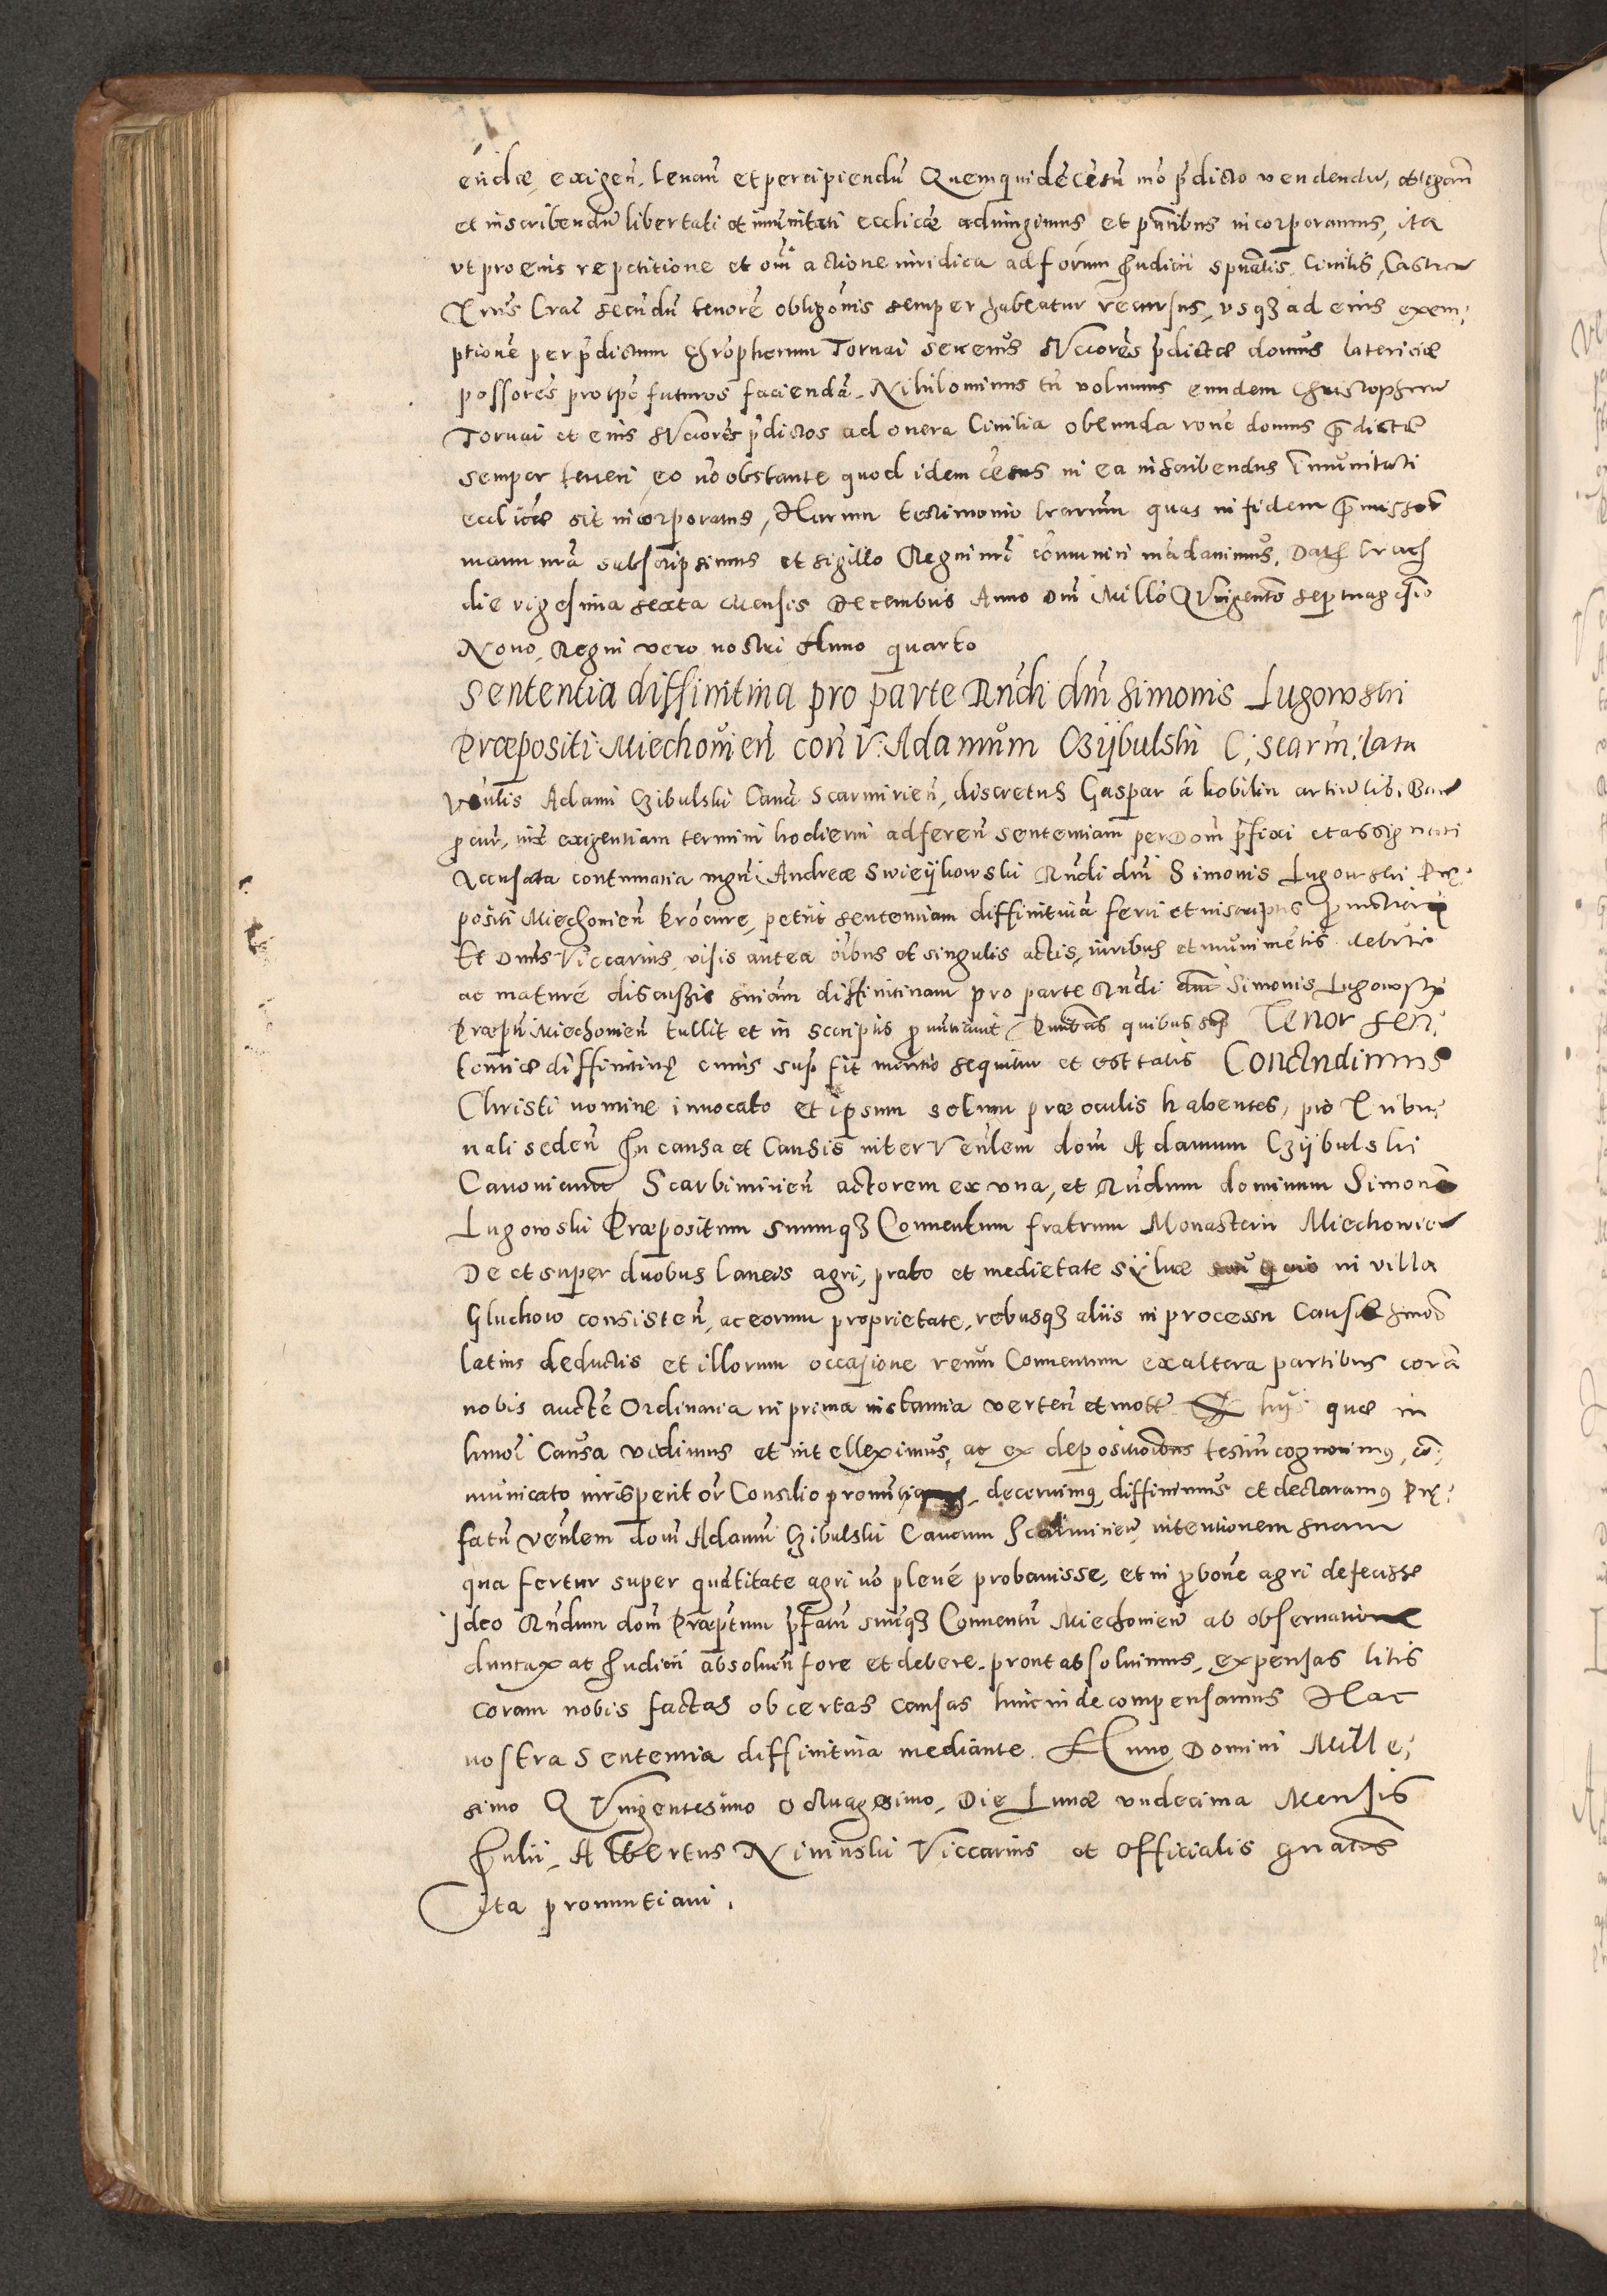 endæ, exigen̄, levan̄ et percipiendū Quemquidē cēsū mō p̄dicto vendendū, obligan̄
et inscribendū libertati et imunitati eccliæ adiungimus et pn̄tibus incorporamus, ita
ut pro eius repetitione et om̄i actione iuridica ad forum Iudicii spūalis, Civilis, Castren̄
Trīs Crac̄ secundū tenorē obligōnis semper habeatur recursus, usq3 ad eius exem;
ptionē per p̄dictum Chrōpherum Tornai seu eius succores p̄dictæ domus latericiæ
possores pro tpē futuros faciendā. Nihilominus tn̄ volumus eundem Christopherū
Tornai et eius succores p̄dictos ad onera Civilia obeunda rone domus p̄dictæ
semper teneri, eo nō obstante quod idem cēsus in ea inscribendus imūnitati
eccliæ sit incorporatus, Harum testimonio lrarum quas in fidem p̄missor̄
manu nr̄a subscripsimus et sigillo Regni nr̄i cōmuniri mādavimus, Dat Crac
die vigesima sexta Mensis Decembris Anno Dni Millo Quingento septuagesimo
Nono, Regni vero nostri Anno quarto
Sententia diffinitiva pro parte Rndi dni Simonis Lugowski
Præpositi Miechovien̄ con̄ V: Adamum Czijbulski C; scarm, lata
Venlis Adami Czibulski Canci Scarmirien̄, discretus Gaspar á kobilin artiū lib. Bacc
pcur, iux exigentiam termini hodierni ad feren̄ sententiam per Dom p̄fixi et assignati
Accusata contumatia mgnci Andreæ Swieijkowski Rndi dni Simonis Lugowski Præ;
positi Miechovien̄ Procure, petiit sententiam diffinitivā ferri et in scriptis pnuctiari
Et Dnus Viccarius, visis antea oībus et singulis actis, iuribus et munimētis debite
ac maturé discussis sniam diffinitivam pro parte Rndi dni Simonis Lugowski
Præpti Miechovien̄ tullit et in scriptis pnunciavit, Pntibus quibus sup̄ Tenor sen;
tentiæ diffinitivæ cuius sup̄ fit mentio sequitur et est talis Concludimus
Christi nomine invocato et ipsum solum præ oculis habentes, pro Tribu;
nali seden̄ In causa et Causis inter Venlem dom Adamum Czijbulski
Canonicum Scarbimirien̄ actorem ex una, et Rndum dominum Simonē
Lugowski Præpositum suumq3 Conventum fratrum Monasterii Miechovien̄
De et super duobus laneis agri, prato et medietate sylvæ in villa
Gluchow consisten̄, ac eorum proprietate, rebusq3 aliis in processu Causæ hmoī
latius deductis et illorum occasione reum Conventum ex altera partibus corā
nobis aucte Ordinaria in prima instantia verten̄ et mot̄ hijs quæ in
hmoī Causa vidimus et intelleximus, ac ex depositionibus testiū cognovimus, cō;
municato iurisperitor̄ Consilio pronuntiamus, decernimus diffinimus et declaramus Præ;
fatū Venlem dom Adamū Czibulski Cancum Scarmirien̄, intentionem suam
qua fertur super quātitate agri nō plené probavisse, et in pbone agri defecisse
Ideo Rndum dom Præptum p̄fatū suūq3 Conventū Miechovien̄ ab observatione
duntaxat Iudicii absolven̄ fore et debere, prout absolvimus, expensas litis
coram nobis factas ob certas causas hinc inde compensamus Hac
nostra sententia diffinitiva mediante. Anno Domini Mille;
simo Quingentesimo Octuagesimo, Die Lunæ undecima Mensis
Iulii, Albertus Niviński Viccarius et Officialis gnalis
ita pronuntiavi.